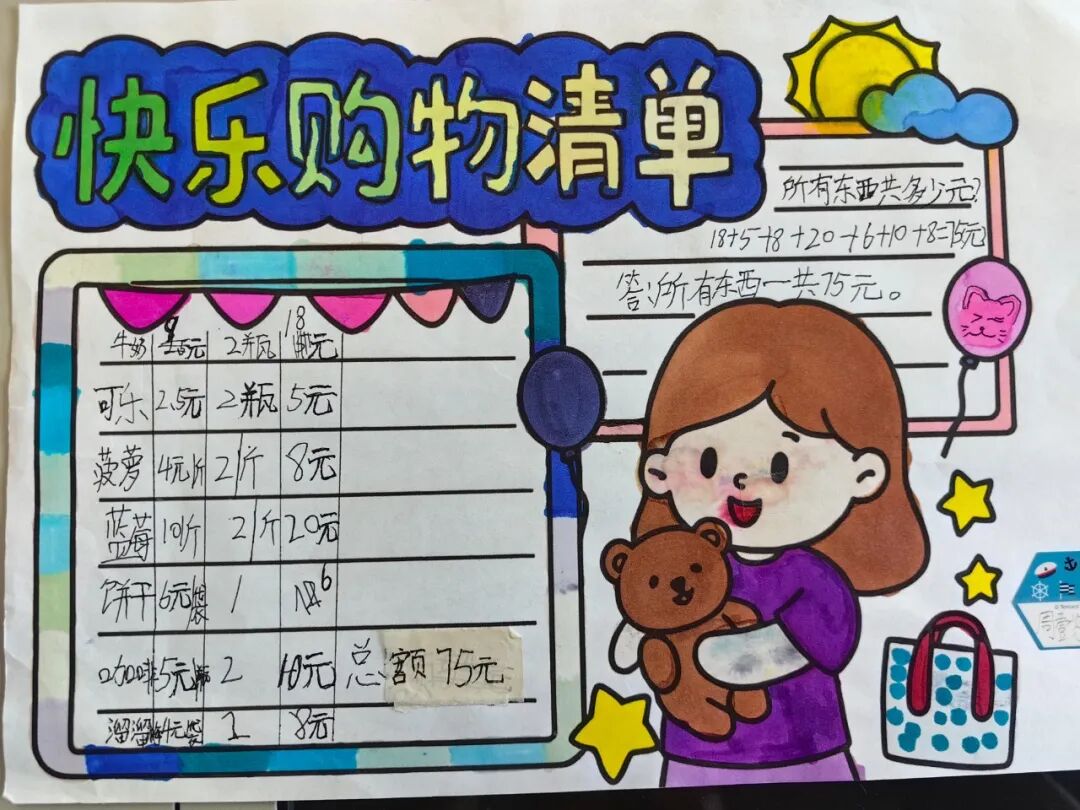 快乐购物清单
所有东西共多少元?
18+5+8+20+6+10+8=75元
答:所有东西一共75元。
牛奶 9元 2瓶 18元
可乐 2.5元 2瓶 5元
菠萝 4元/斤 2/斤 8元
蓝莓 10/斤 2/斤 20元
饼干 6元袋 1 6
咖啡 5元 2 10元 总额75元
溜溜 4元袋 8元